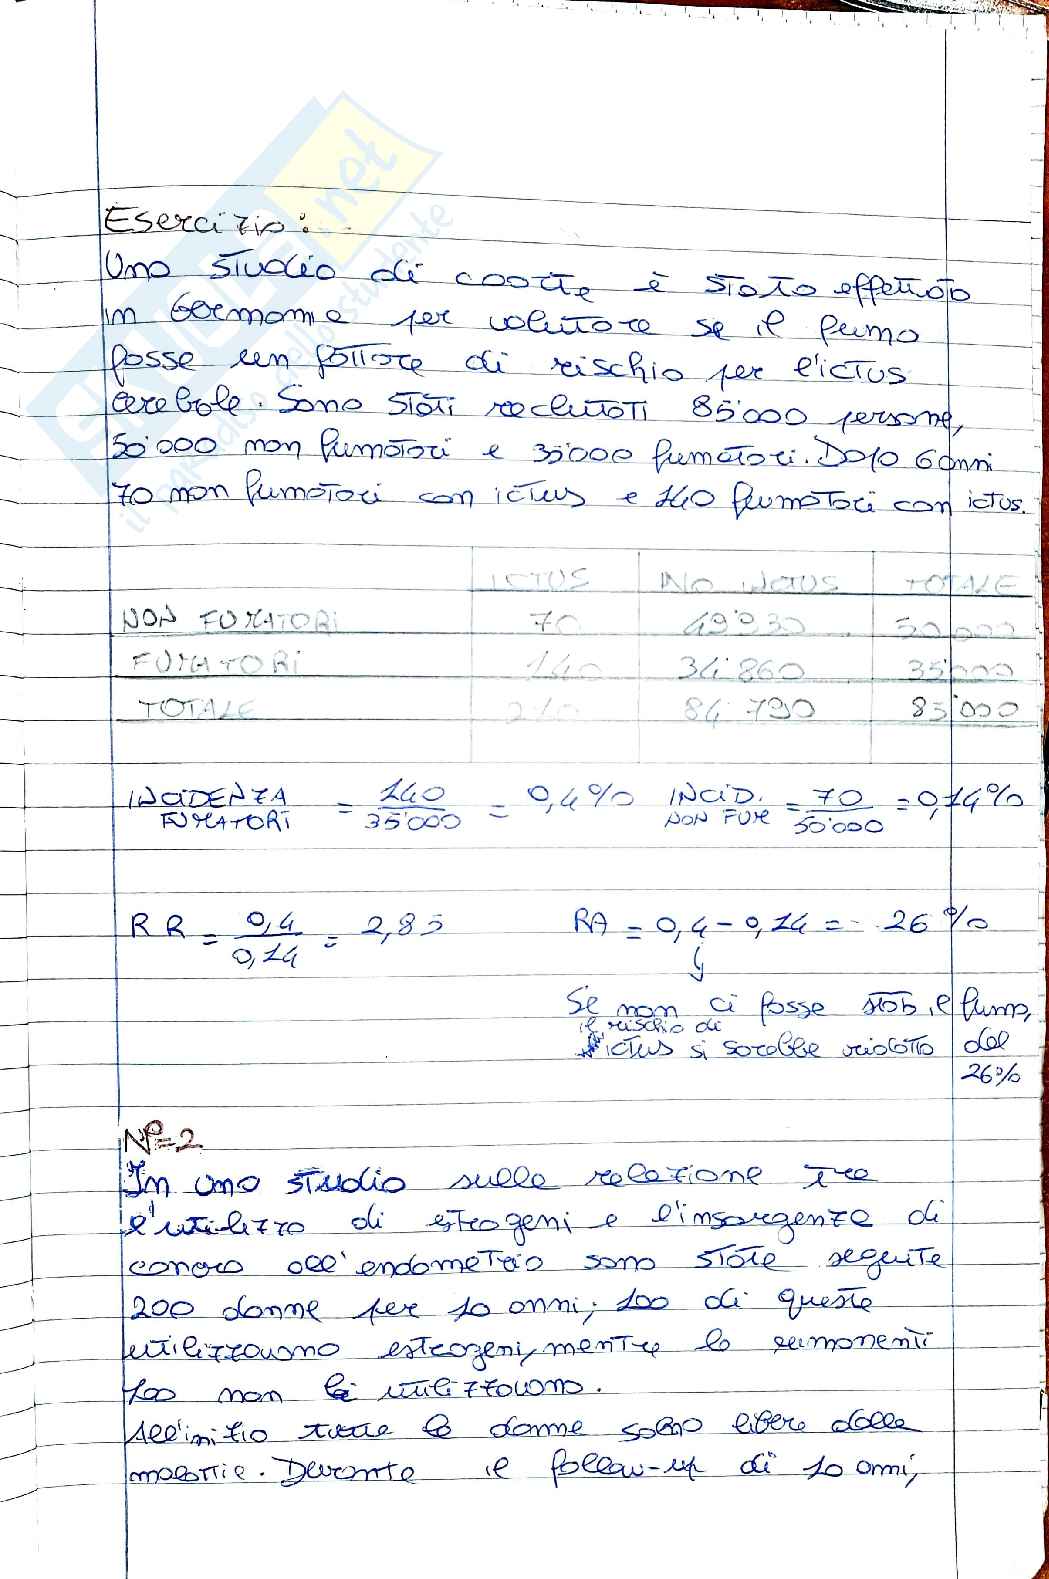 SKUOLA.net
il paradiso dello studente
Esercizio:
Uno studio di coorte è stato effettuato
in Germania per valutare se il fumo
fosse un fattore di rischio per l'ictus
cerebale. Sono stati reclutati 85'000 persone,
50'000 non fumatori e 35'000 fumatori. Dopo 6 anni
70 non fumatori con ictus e 140 fumatori con ictus.
ICTUS NO ICTUS TOTALE
NON FUMATORI 70 49'930 50'000
FUMATORI 140 34'860 35'000
TOTALE 210 84'790 85'000
INCIDENZA FUMATORI = 140/35'000 = 0,4% INCID. NON FUM = 70/50'000 = 0,14%
RR = 0,4/0,14 = 2,85 RA = 0,4 - 0,14 = 26%
Se non ci fosse stato il fumo,
il rischio di
ictus si sarebbe ridotto del
26%
N°=2
In uno studio sulla relazione tra
l'utilizzo di estrogeni e l'insorgenza di
cancro all'endometrio sono state seguite
200 donne per 10 anni; 100 di queste
utilizzavano estrogeni, mentre le rimanenti
100 non li utilizzavano.
All'inizio tutte le donne sono libere dalla
malattia. Durante il follow-up di 10 anni,